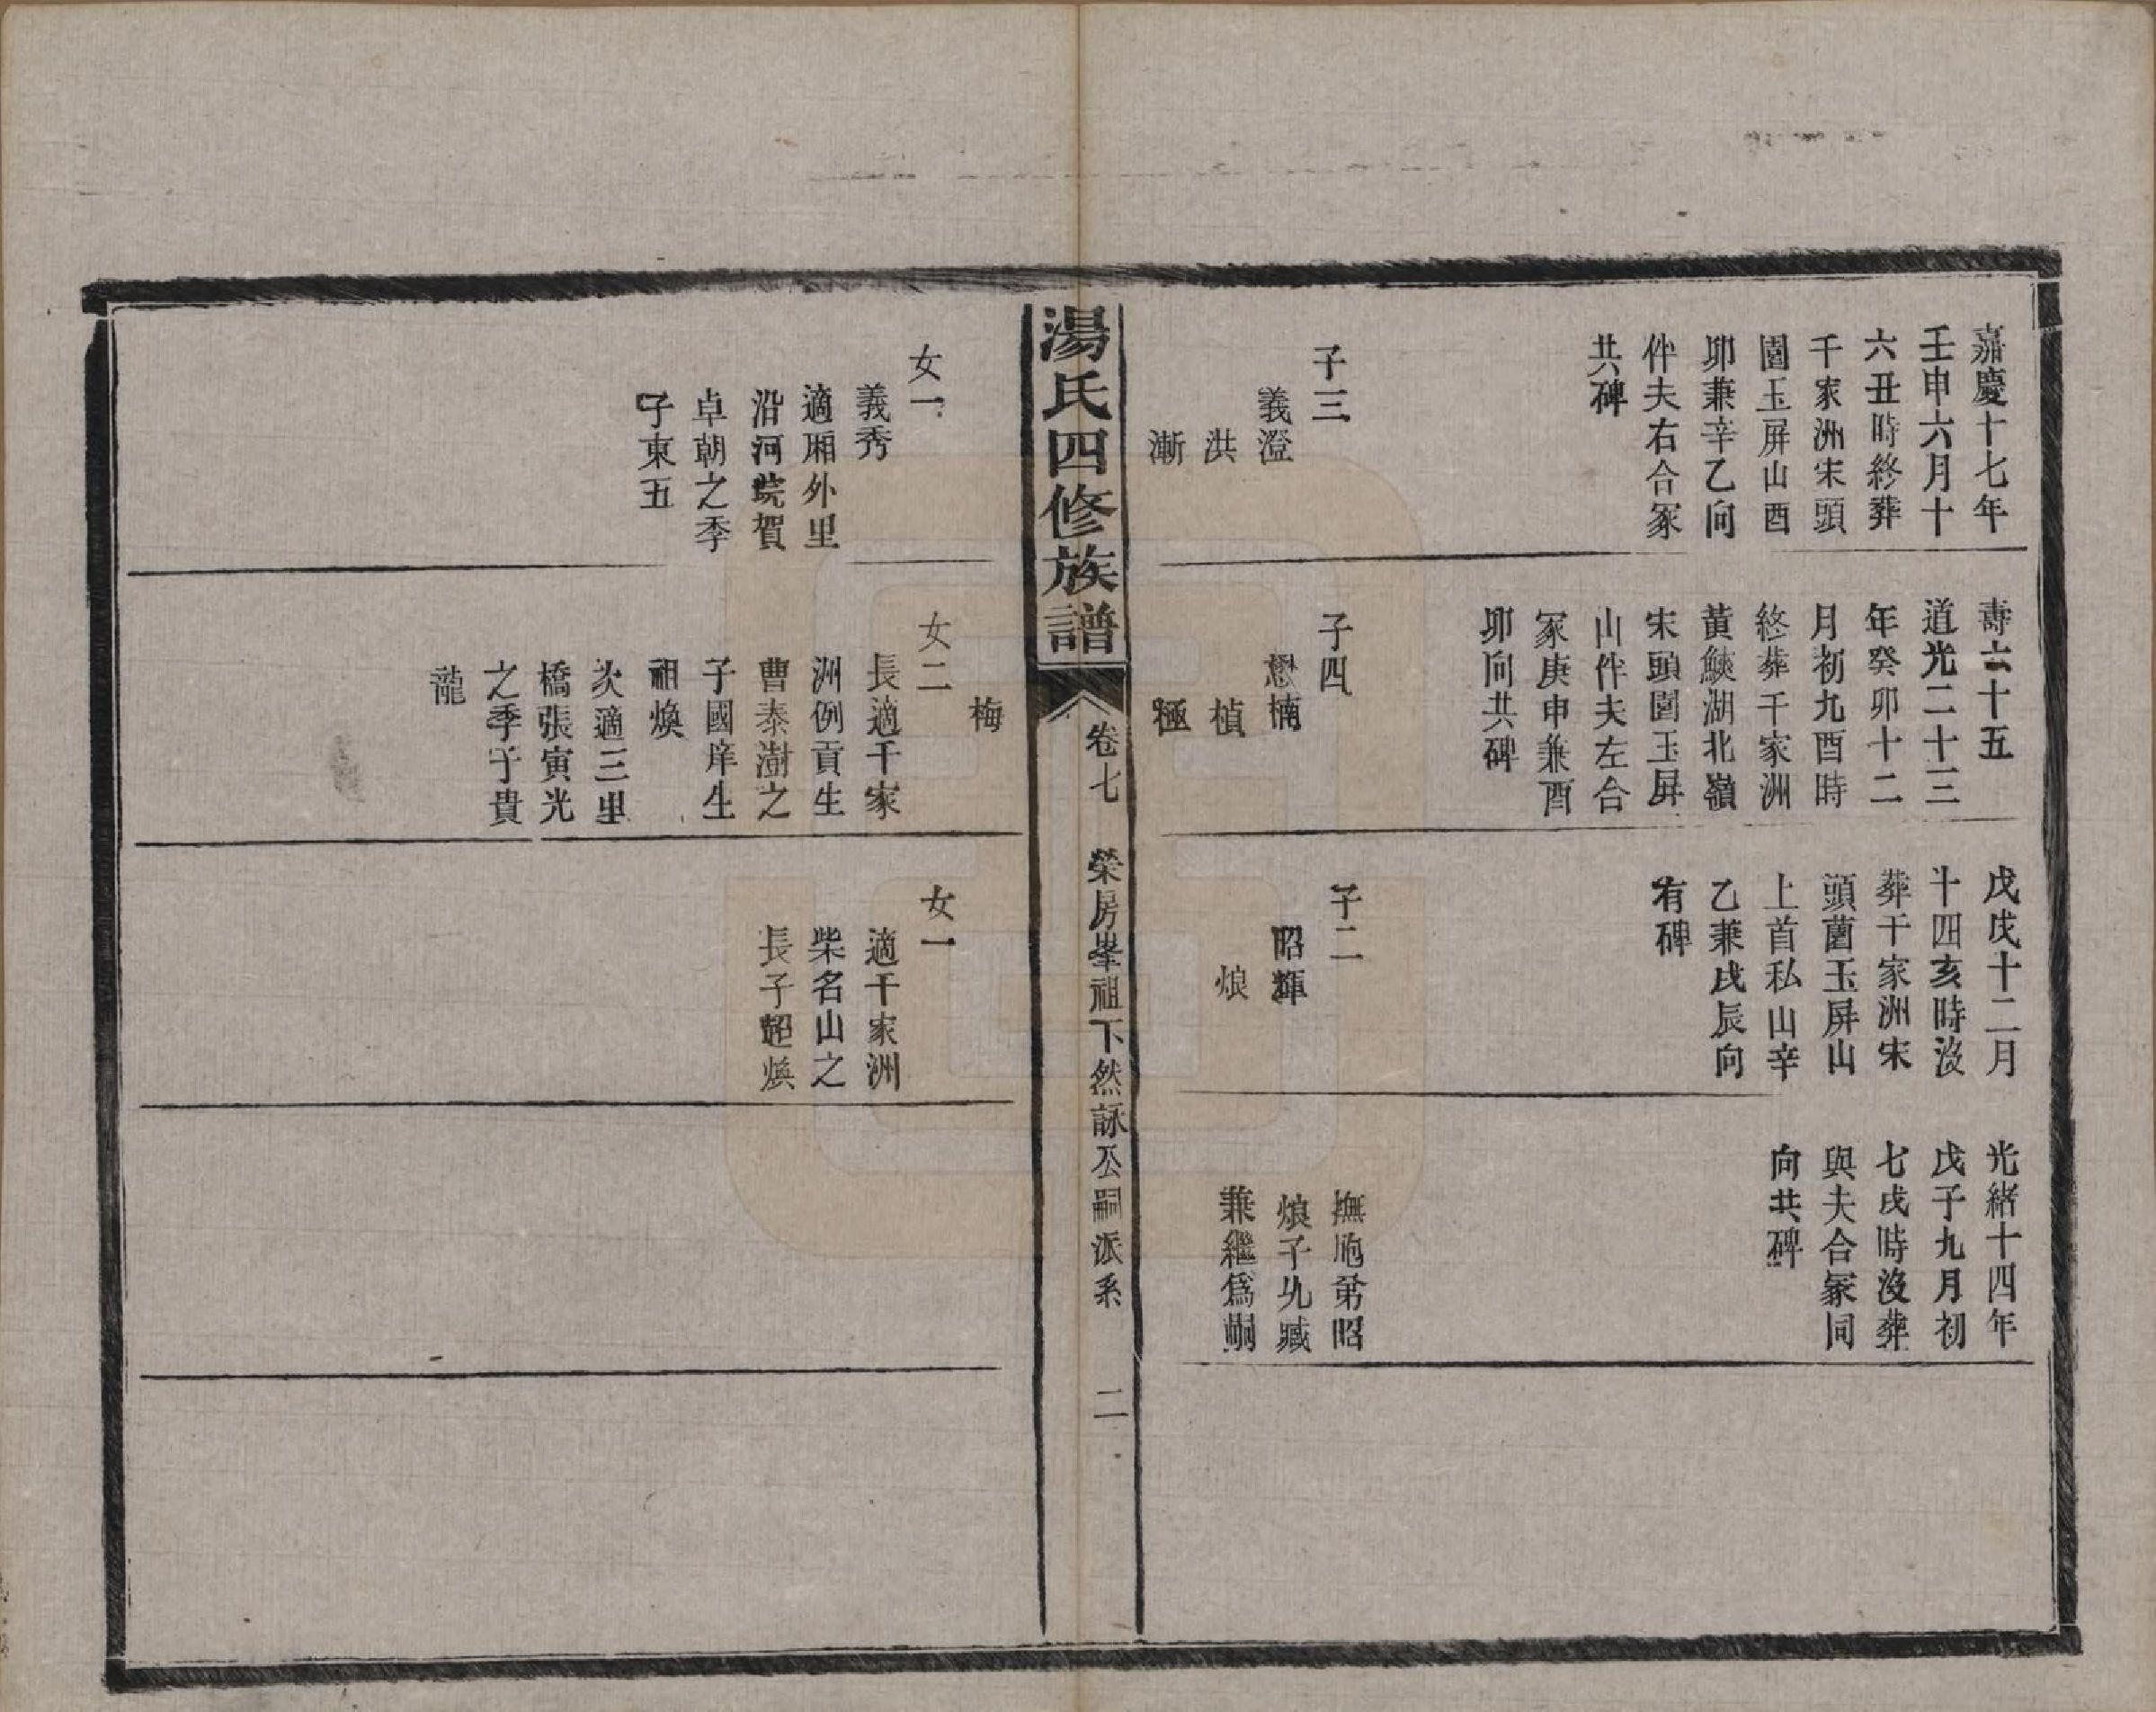 嘉慶十七年
壬申六月十
六丑時終葬
千家洲宋頭
園玉屏山酉
卯兼辛乙向
伴夫右合冢
共碑
子三
義澄
洪
漸
壽六十五
道光二十三
年癸卯十二
月初九酉時
終葬千家洲
黃鯅湖北嶺
宋頭園玉屏
山伴夫左合
冢庚申兼酉
卯向共碑
子四
懋楠
楨
極
戊戌十二月
十四亥時沒
葬千家洲宋
頭薗玉屏山
上首私山辛
乙兼戌辰向
有碑
子二
昭輝
烺
光緒十四年
戊子九月初
七戌時沒葬
與夫合冢同
向共碑
撫胞弟昭
烺子九臧
兼繼爲嗣
湯氏四修族譜
卷七
榮房峯祖下然詠公嗣派系
二
女一
義秀
適厢外里
沿河院賀
卓朝之季
子東五
梅
女二
長適千家
洲例貢生
曹泰澍之
子國庠生
祖煥
次適三里
橋張寅光
之季子貴
龍
女一
適千家洲
柴名山之
長子超煥